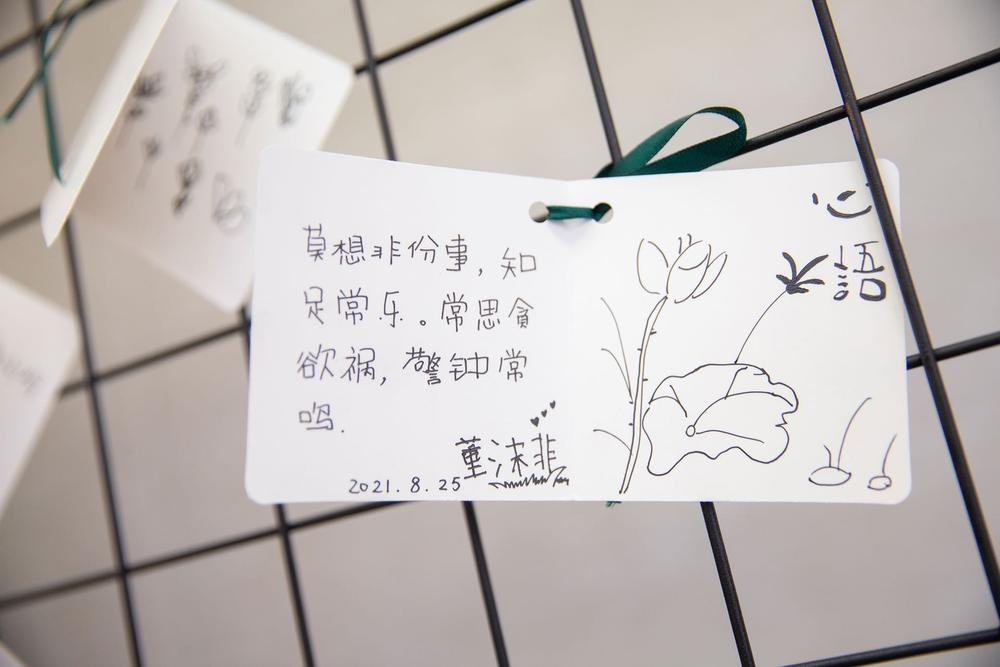 莫想非份事,知
足常乐。常思贪
欲祸,警钟常
鸣.
董沫非
2021.8.25
心
语